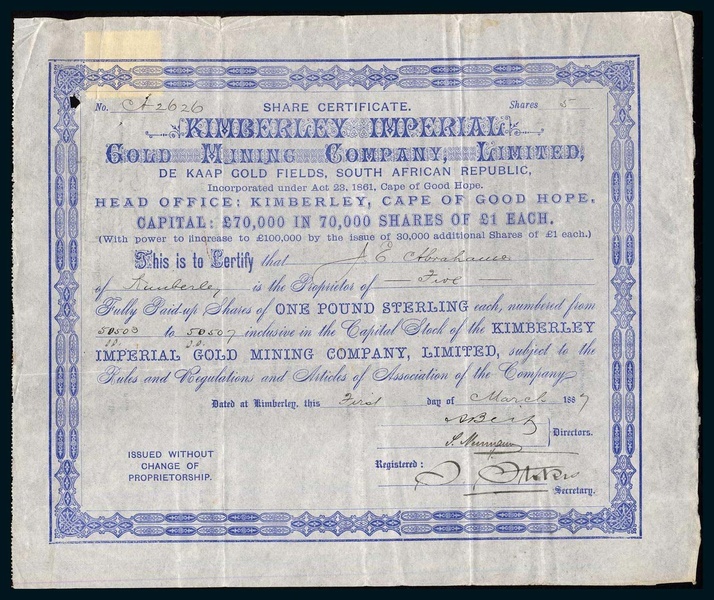 No. A2626 SHARE CERTIFICATE. Shares 5
KIMBERLEY IMPERIAL
GOLD MINING COMPANY, LIMITED,
DE KAAP GOLD FIELDS, SOUTH AFRICAN REPUBLIC,
Incorporated under Act 23, 1861, Cape of Good Hope.
HEAD OFFICE: KIMBERLEY, CAPE OF GOOD HOPE,
CAPITAL: £70,000 IN 70,000 SHARES OF £1 EACH.
(With power to increase to £100,000 by the issue of 30,000 additional Shares of £1 each.)
This is to Certify that J. E. Abrahams
of Kimberley is the Proprietor of — Five —
Fully Paid-up Shares of ONE POUND STERLING each, numbered from
50503 to 50507 inclusive in the Capital Stock of the KIMBERLEY
IMPERIAL GOLD MINING COMPANY, LIMITED, subject to the
Rules and Regulations and Articles of Association of the Company
Dated at Kimberley, this First day of March 1887
ABeit
S. Neumann
Directors.
ISSUED WITHOUT
CHANGE OF
PROPRIETORSHIP.
Registered:
Secretary.